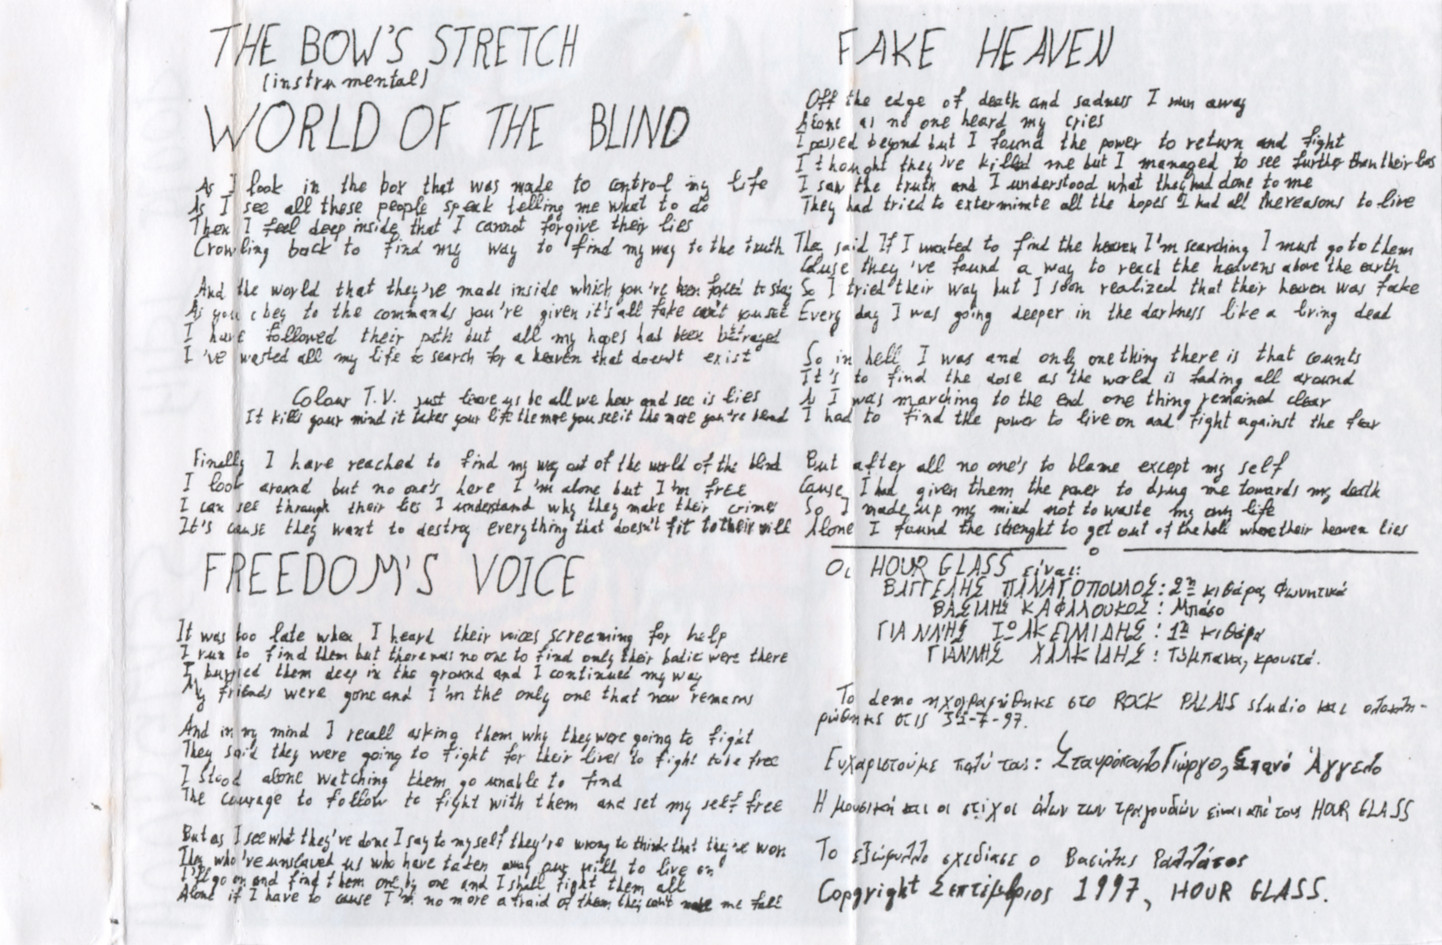 THE BOW'S STRETCH
(instrumental)
WORLD OF THE BLIND
As I look in the box that was made to control my life
As I see all these people speak telling me what to do
Then I feel deep inside that I cannot forgive their lies
Crowling back to find my way to find my way to the truth
And the world that they've made inside which you're been forced to stay
As you obey to the commands you're given it's all fake can't you see
I have followed their path but all my hopes had been betrayed
I've wasted all my life to search for a heaven that doesn't exist
Colour T.V. just leave us be all we hear and see is lies
It kills your mind it takes your life the more you see it the more you're blind
Finally I have reached to find my way out of the world of the blind
I look around but no one's here I'm alone but I'm free
I can see through their lies I understand why they make their crimes
It's cause they want to destroy everything that doesn't fit to their will
FREEDOM'S VOICE
It was too late when I heard their voices screaming for help
I run to find them but there was no one to find only their bodie were there
I burried them deep in the ground and I continued my way
My friends were gone and I'm the only one that now remains
And in my mind I recall asking them why they were going to fight
They said they were going to fight for their lives to fight to be free
I stood alone watching them go unable to find
The courage to follow to fight with them and set my self free
But as I see what they've done I say to myself they're wrong to think that they've won
They who've unslaved us who have taken away our will to live on
I'll go on and find them one by one and I shall fight them all
Alone if I have to cause I'm no more afraid of them they can't make me fall
FAKE HEAVEN
Off the edge of death and sadness I run away
Alone as no one heard my cries
I passed beyond but I found the power to return and fight
I thought they've killed me but I managed to see further than their lies
I saw the truth and I understood what they had done to me
They had tried to exterminate all the hopes I had all the reasons to live
They said If I wanted to find the heaven I'm searching I must go to them
Cause they've found a way to reach the heavens above the earth
So I tried their way but I soon realized that their heaven was fake
Every day I was going deeper in the darkness like a living dead
So in hell I was and only one thing there is that counts
It's to find the dose as the world is fading all around
As I was marching to the end one thing remained clear
I had to find the power to live on and fight against the fear
But after all no one's to blame except my self
Cause I had given them the power to drug me towards my death
So I made up my mind not to waste my only life
Alone I found the strenght to get out of the hell where their heaven lies
Οι HOUR GLASS είναι:
ΒΑΓΓΕΛΗΣ ΠΑΝΑΓΟΠΟΥΛΟΣ: 2η κιθάρα, Φωνητικά
ΒΑΣΙΛΗΣ ΚΑΦΑΛΟΥΚΟΣ: Μπάσο
ΓΙΑΝΝΗΣ ΙΩΑΚΕΙΜΙΔΗΣ: 1η κιθάρα
ΓΙΑΝΝΗΣ ΧΑΛΚΙΔΗΣ: Τύμπανα, κρουστά.
Το demo ηχογραφήθηκε στο ROCK PALAIS studio και ολοκλη-
ρώθηκε στις 31-7-97.
Ευχαριστούμε πολύ τους: Γιώργο, Άγγελο
Η μουσική και οι στίχοι όλων των τραγουδιών είναι από τους HOUR GLASS
Το εξώφυλλο σχεδίασε ο Βασίλης Ραλλάτος
Copyright Σεπτέμβριος 1997, HOUR GLASS.